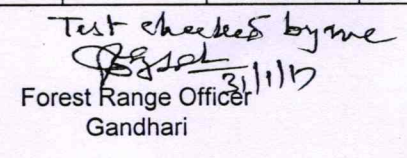 Test checked by me
31/1/17
Forest Range Officer
Gandhari